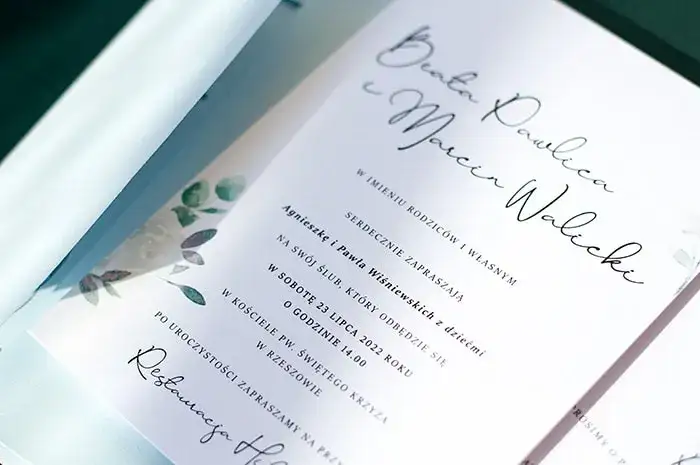 Beata Pawlica
i Marcin Walicki
W IMIENIU RODZICÓW I WŁASNYM
SERDECZNIE ZAPRASZAJĄ
Agnieszkę i Pawła Wiśniewskich z dziećmi
NA SWÓJ ŚLUB, KTÓRY ODBĘDZIE SIĘ
W SOBOTĘ 23 LIPCA 2022 ROKU
O GODZINIE 14.00
W KOŚCIELE PW. ŚWIĘTEGO KRZYŻA
W RZESZOWIE
PO UROCZYSTOŚCI ZAPRASZAMY NA
Restauracja